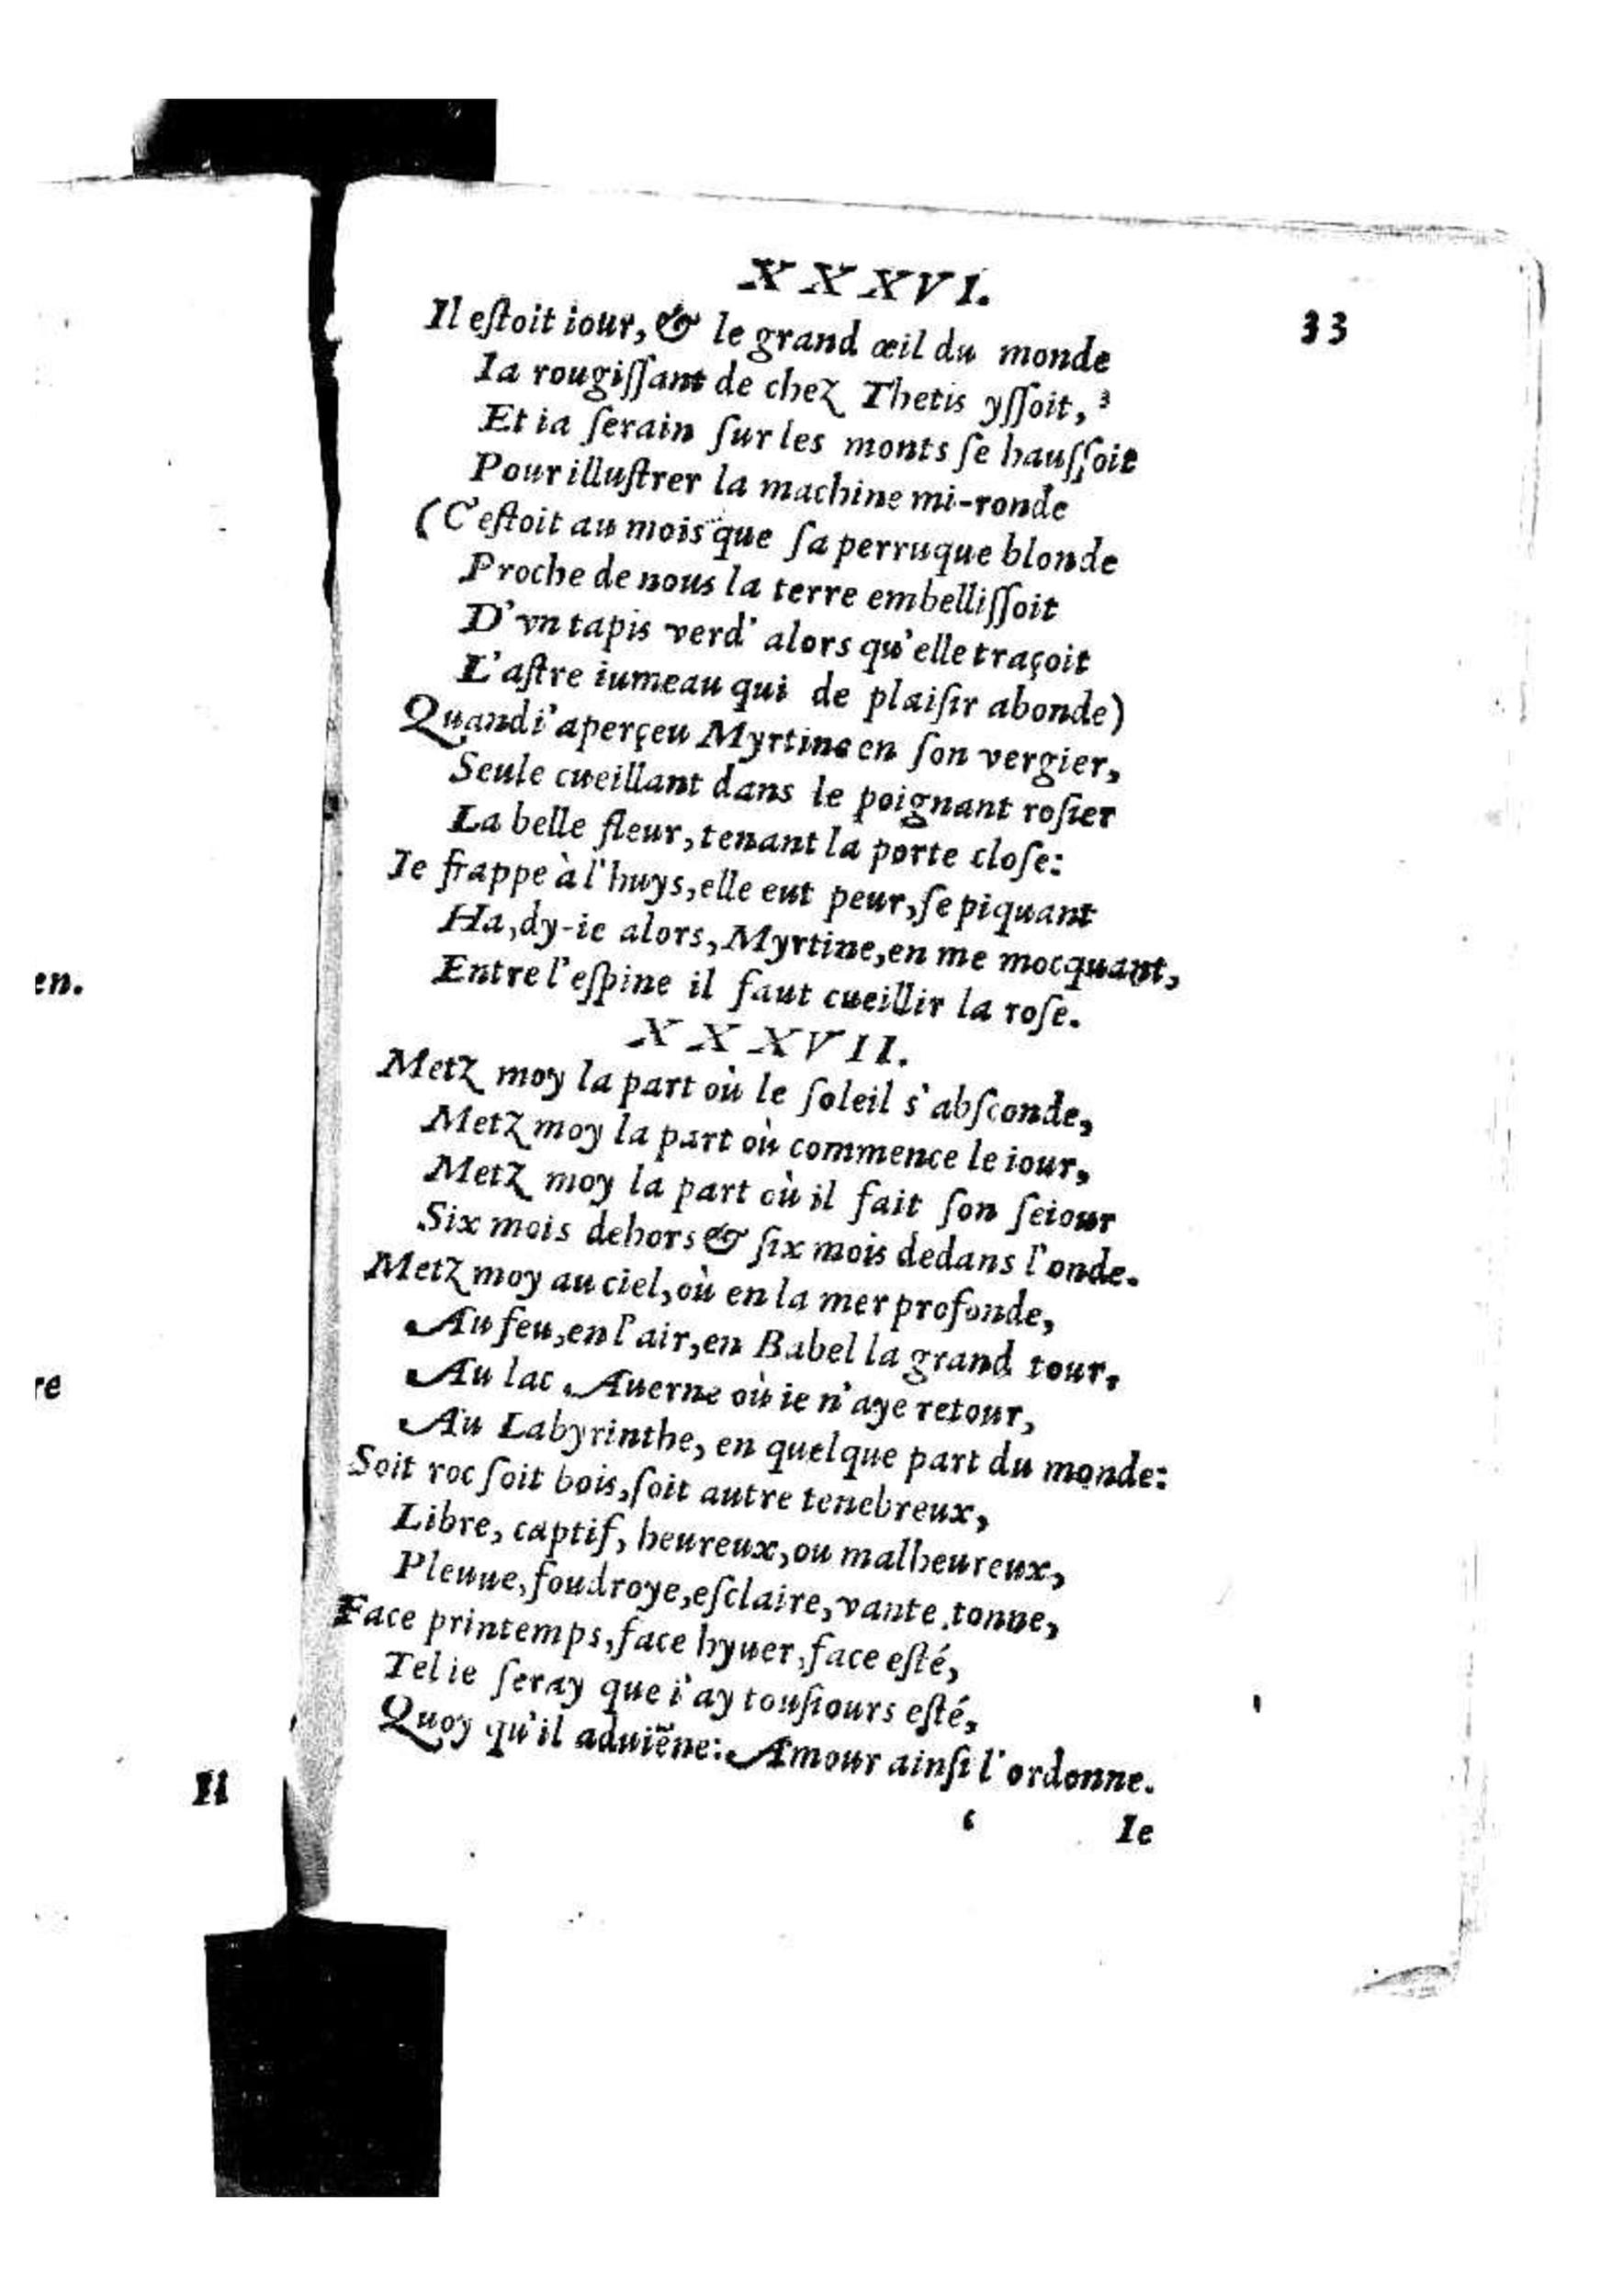 en.
re
Il
33
XXXVI.
Il eſtoit iour, & le grand œil du monde
Ia rougiſſant de chez Thetis yſſoit,
Et ia ſerain ſur les monts ſe hauſſoit
Pour illuſtrer la machine mi-ronde
(C'eſtoit au mois que ſa perruque blonde
Proche de nous la terre embelliſſoit
D'vn tapis verd' alors qu'elle traçoit
L'aſtre iumeau qui de plaiſir abonde)
Quand i'aperçeu Myrtine en ſon vergier,
Seule cueillant dans le poignant roſier
La belle fleur, tenant la porte cloſe:
Ie frappe à l'huys, elle eut peur, ſe piquant
Ha, dy-ie alors, Myrtine, en me mocquant,
Entre l'eſpine il faut cueillir la roſe.
XXXVII.
Metz moy la part où le ſoleil s'abſconde,
Metz moy la part où commence le iour,
Metz moy la part où il fait ſon ſeiour
Six mois dehors & ſix mois dedans l'onde.
Metz moy au ciel, où en la mer profonde,
Au feu, en l'air, en Babel la grand tour,
Au lac Auerne où ie n'aye retour,
Au Labyrinthe, en quelque part du monde:
Soit roc ſoit bois, ſoit autre tenebreux,
Libre, captif, heureux, ou malheureux,
Pleuue, foudroye, eſclaire, vante, tonne,
Face printemps, face hyuer, face eſté,
Tel ie ſeray que i'ay touſiours eſté,
Quoy qu'il aduiēne: Amour ainſi l'ordonne.
Ie